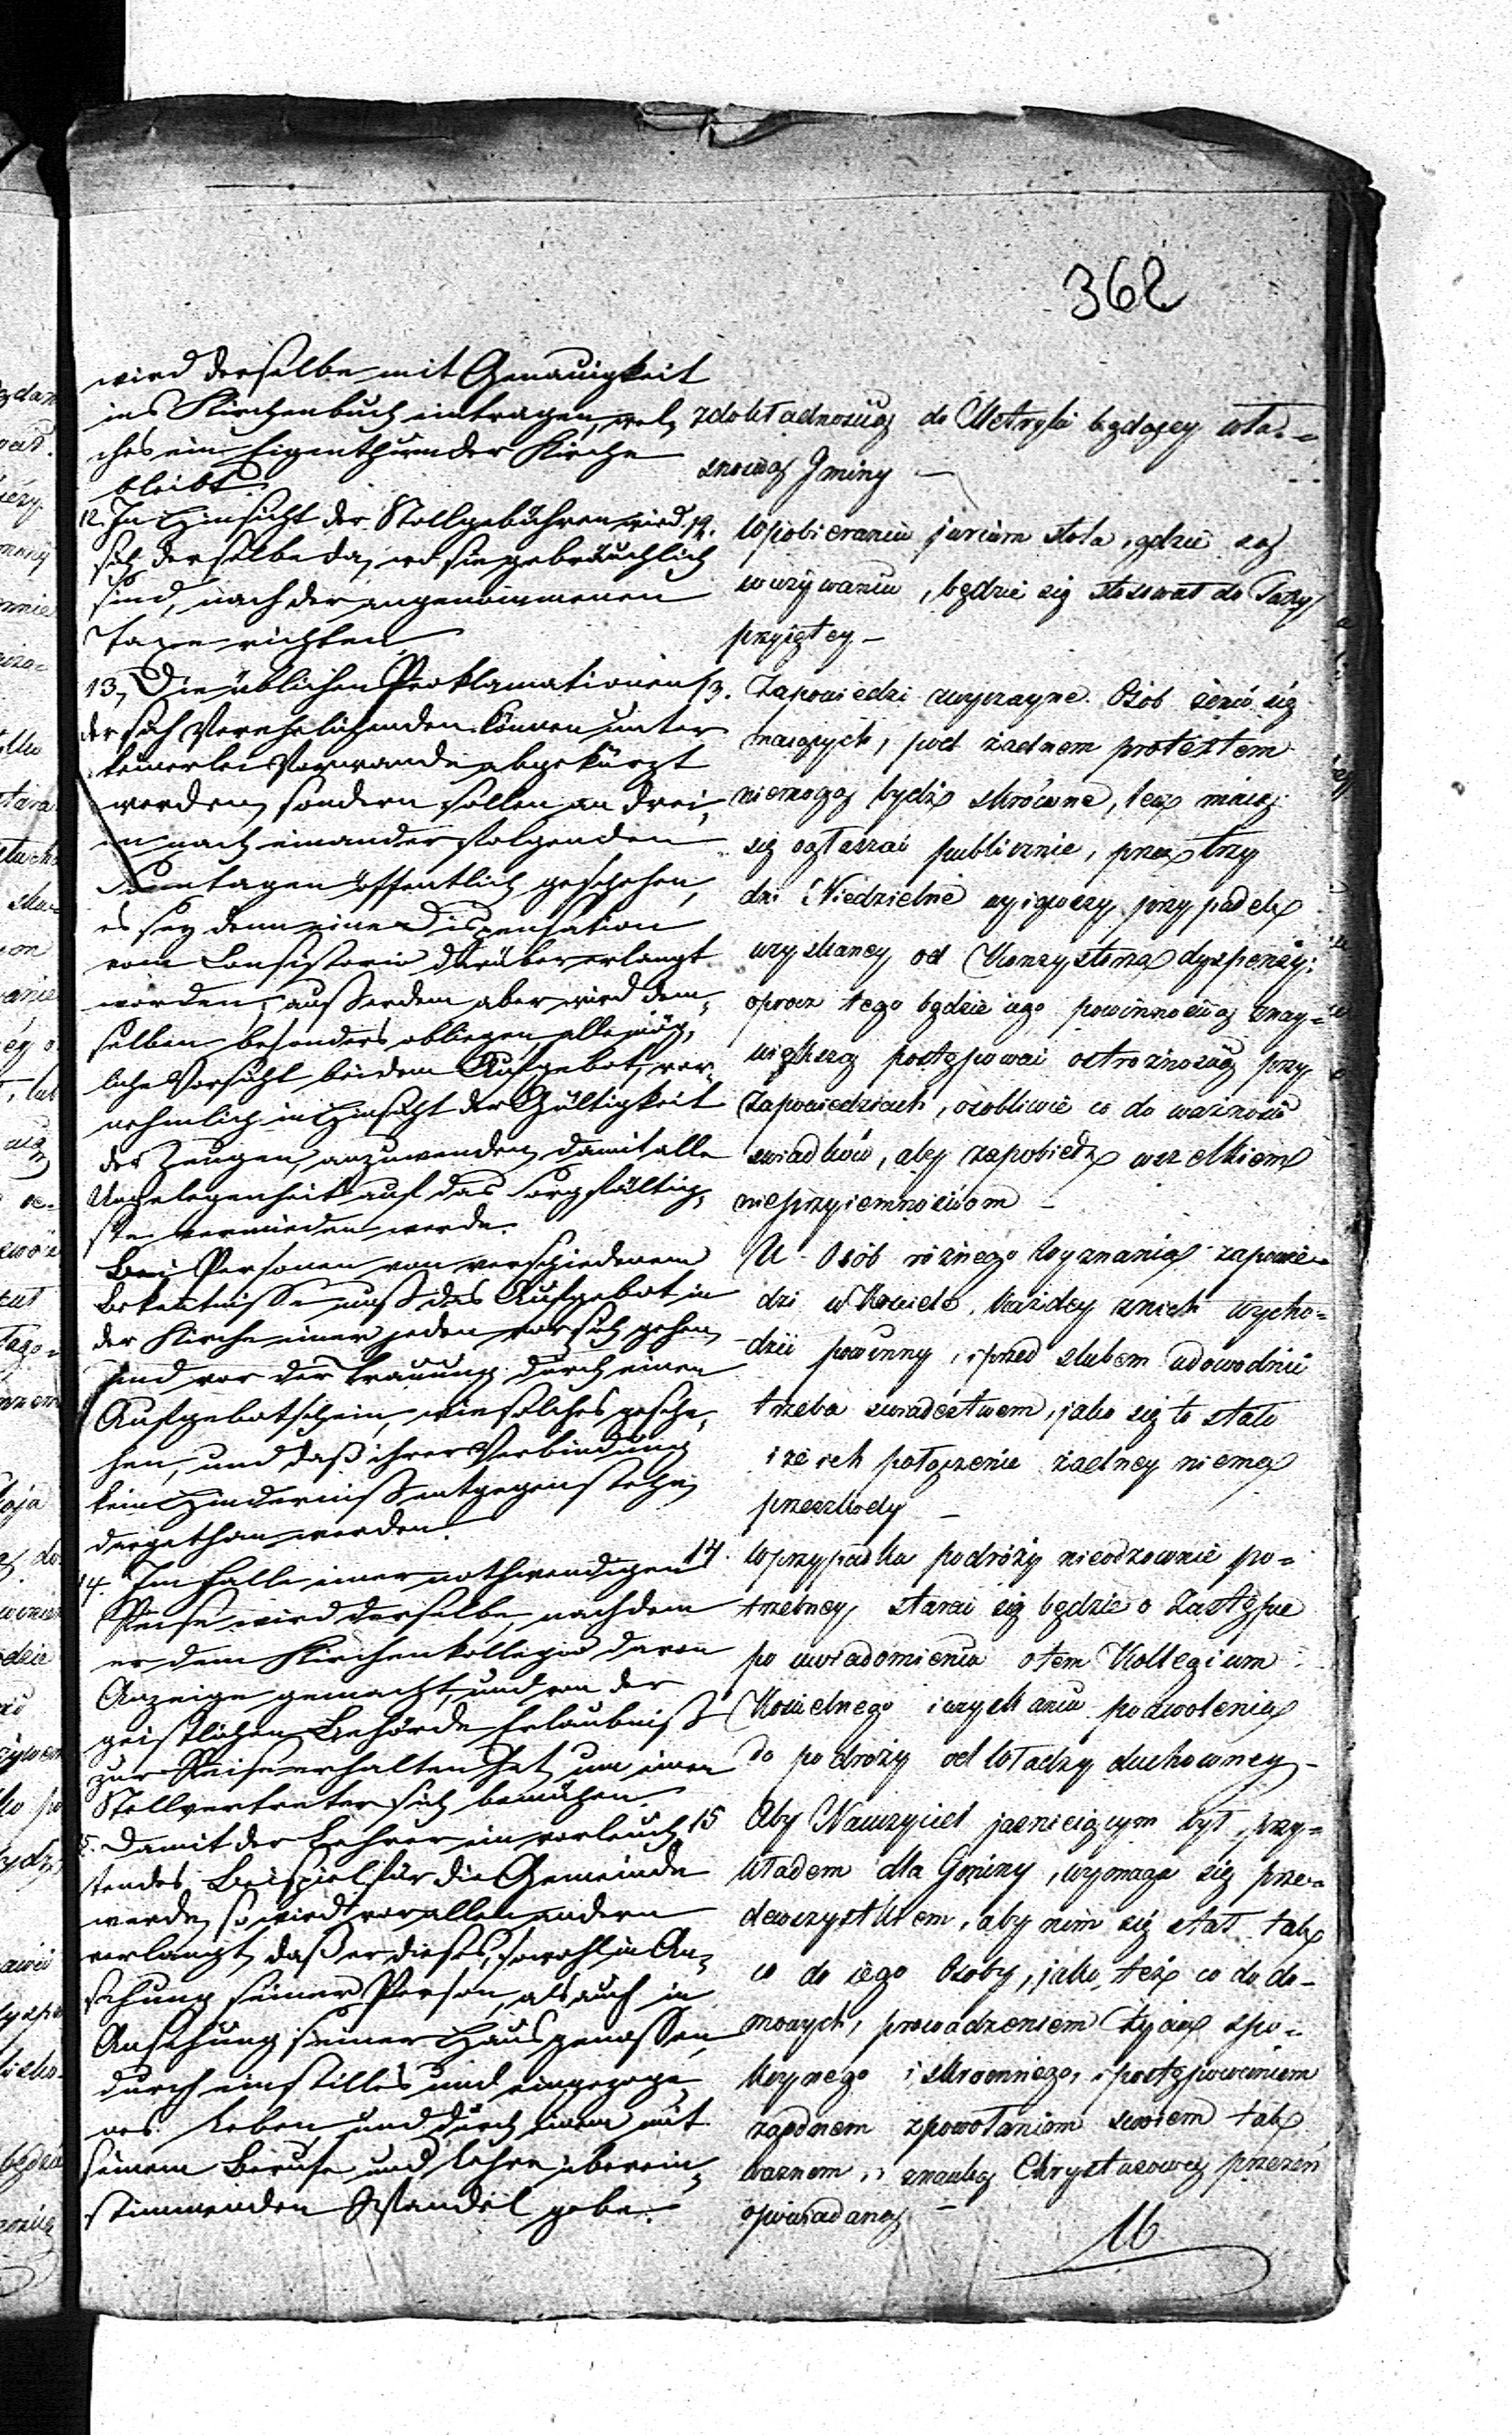 362
wird derselbe mit Genauigkeit
ins Kirchenbuch eintragen, wel,
ches ein Eigenthum der Kirche
bleibt.
12. In Hinsicht der Stollgebühren wird
sich derselbe da, wo sie gebräuchlich
sind, nach der angenommenen
Taxe richten.
13, Die üblichen Proklamationen
der sich Verehelichenden können unter
keinerlei Vorwande abgekürzt
werden, sondern sollen an drei,
en nach einander folgenden
Sonntagen öffentlich geschehen,
es sey denn eine Dispensation
vom Consistorio darüber erlangt
worden; außerdem aber wird dem,
selben besonders obliegen alle mög,
liche Vorsicht bei dem Aufgebot, vor,
nehmlich in Hinsicht der Gültigkeit
der Zeugen anzuwenden, damit alle
Ungelegenheit auf das sorgfältig,
ste vermieden werde.
Bei Personen von verschiedenem
Bekenntnisse muß das Aufgebot in
der Kirche einer jeden vor sich gehen,
und vor der Trauung durch einen
Aufgebotschein, wie solches gesche,
hen, und daß ihrer Verbindung
kein Hinderniß entgegenstehe,
dargethan werden.
14. Im Falle einer nothwendigen
Reise wird derselbe, nachdem
er dem Kirchenkollegio davon
Anzeige gemacht, und von der
geistlichen Behörde Erlaubniß
zur Reise erhalten hat, um einen
Stellvertreter sich bemühen.
15. Damit der Lehrer ein vorleuch,
tendes Beispiel für die Gemeinde
werde, so wird vor allem andern
verlangt, daß er dieses, sowohl in An,
sehung seiner Person, als auch in
Ansehung seiner Hausgenossen,
durch ein stilles und eingezoge,
nes Leben und durch einen mit
seinem Berufe und Lehre überein,
stimmenden Wandel gebe.
zdokładnością do Metryki będącey wła=
snością Gminy —
12. W pobieraniu jurium stola, gdzie są
w używaniu, będzie się stosował do Taxy
przyiętey —
13. Zapowiedzi zwyczayne Osób żenić się
maiących, pod żadnem protextem
niemogą bydź skrócone, lecz maią
się ogłaszać publicznie, przez trzy
dni Niedzielne wyiąwszy przypadek
uzyskaney od Konzystorza dyspenzyi
oprocz tego będzie iego powinnością znay=
większą postępować ostrożnością przy
Zapowiedziach, osobliwie co do ważności
swiadków, aby zapobiedz wszelkiem
nieprzyiemnościom —
U Osób rożnego Wyznania zapowie=
dzi w Kościele każdey znich wycho=
dzić powinny, i przed slubem udowodnić
trzeba swiadectwem, jako się to stało
i że ich połączeniu żadney niema
przeszkody —
14. W przypadku podróży nieodzownie po=
trzebney, starać się będzie o Zastępcę
po uwiadomieniu otem Kollegium
Kościelnego i uzyskaniu pozwolenia
do podroży od Władzy duchowney —
15 Aby Nauczyciel jaśnieiącym był przy=
kładem dla Gminy, wymaga się prze=
dewszystkiem, aby nim się stał tak
co do iego Osoby, jako też co do do=
mowych, prowadzeniem życia spo=
koynego i skromnego, i postępowaniem
zgodnem z powołaniem swoiem tak
ważnem, i z nauką Chrystusową przezeń
opowiadaną —
16